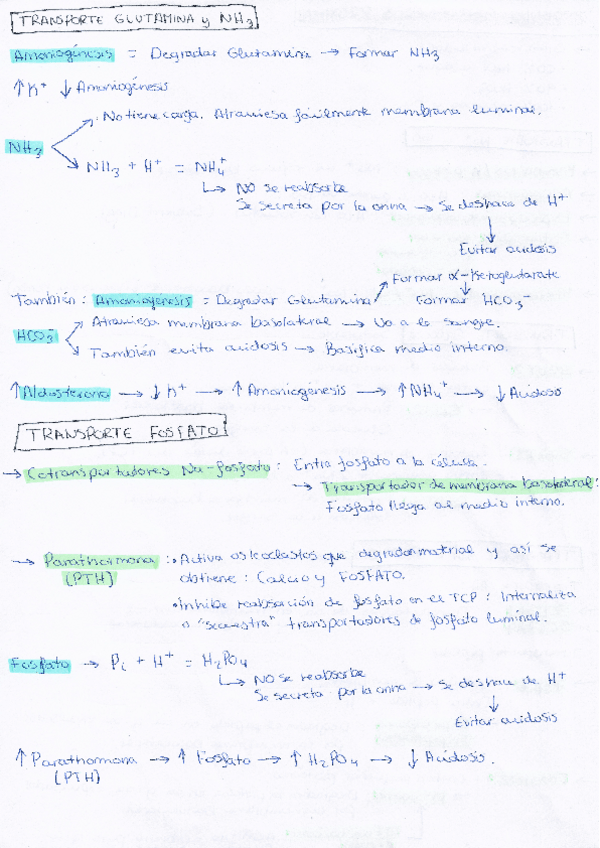 TRANSPORTE GLUTAMINA y NH3
Amoniogénesis = Degradar Glutamina → Formar NH3
↑ K+ ↓ Amoniogénesis
No tiene carga. Atraviesa fácilmente membrana luminal.
NH3
NH3 + H+ = NH4+
↳ NO se reabsorbe
Se secreta por la orina → Se deshace de H+
↓
Evitar acidosis
Formar α-Ketoglutarato
↓
También: Amoniogénesis = Degradar Glutamina Formar HCO3-
Atraviesa membrana basolateral → Va a la sangre.
HCO3-
También evita acidosis → Basifica medio interno.
↑ Aldosterona → ↓ K+ → ↑ Amoniogénesis → ↑ NH4+ → ↓ Acidosis
TRANSPORTE FOSFATO
→ Cotransportadores Na-fosfato: Entra fosfato a la célula.
→ Transportador de membrana basolateral:
Fosfato llega al medio interno.
→ Parathormona : • Activa osteoclastos que degradan material y así se
(PTH) obtiene: Calcio y FOSFATO.
• Inhibe reabsorción de fosfato en el TCP: Internaliza
o "secuestra" transportadores de fosfato luminal.
Fosfato → Pi + H+ = H2PO4
↳ NO se reabsorbe
Se secreta por la orina → Se deshace de H+
↓
Evitar acidosis
↑ Parathormona → ↑ Fosfato → ↑ H2PO4 → ↓ Acidosis.
(PTH)